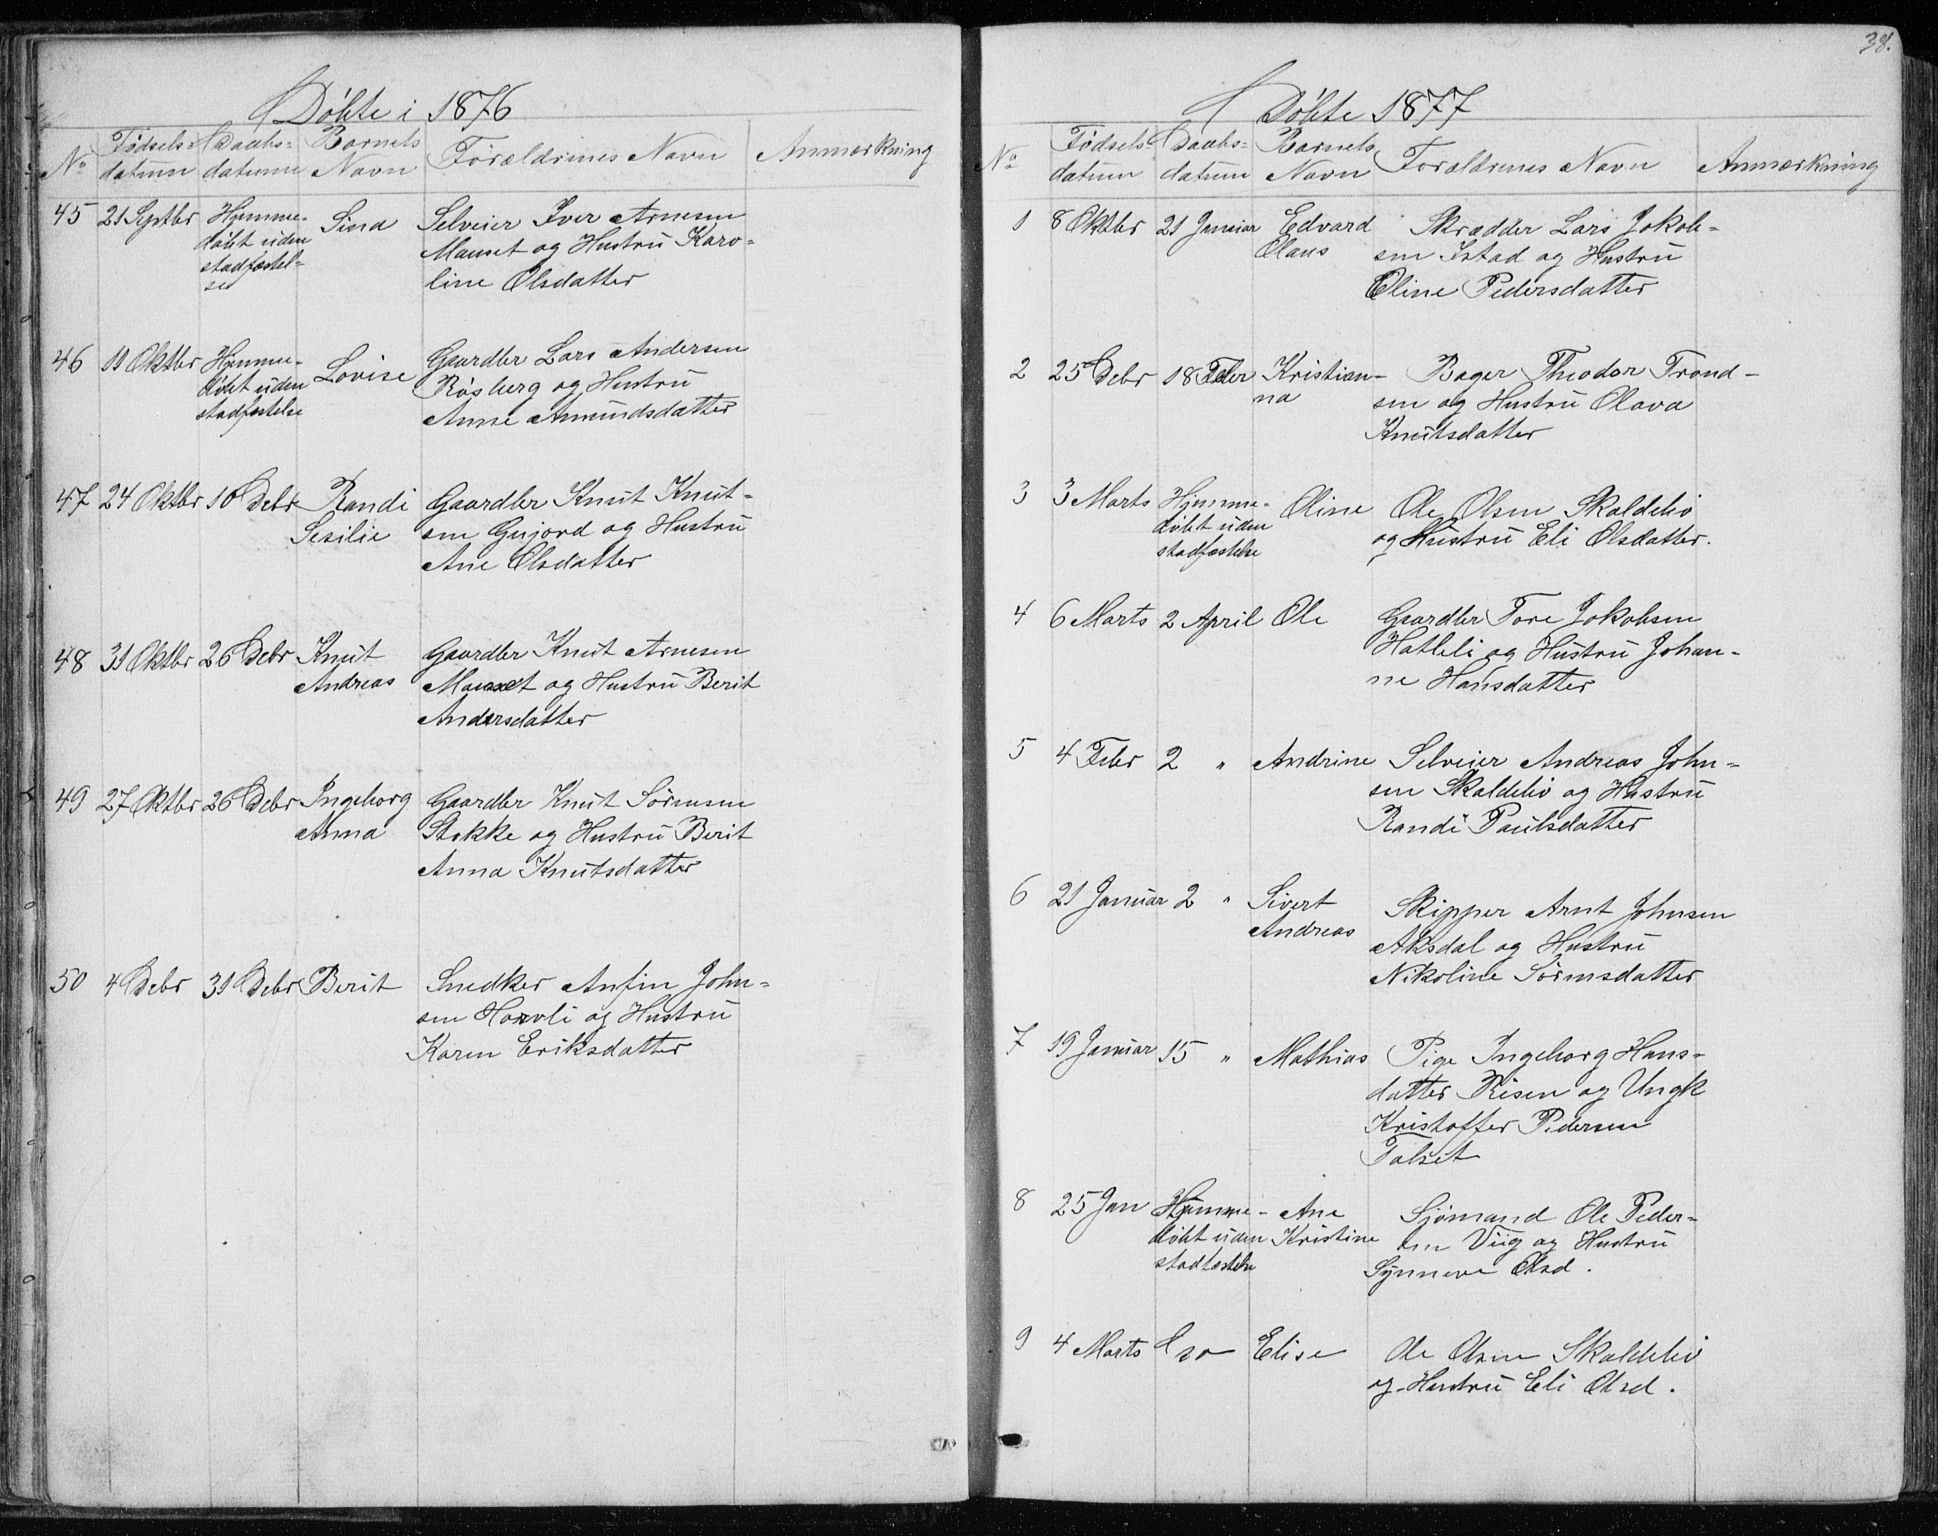 Døbte i 1876
No
Fødsels-
datum
Daabs-
datum
Barnets
Navn
Forældrenes Navn
Anmærkning
45
21 Septbr
Hjemme-
døbt uden
stadfæstel-
se
Sina
Selveier Iver Arnesen
Mauset og Hustru Karo-
line Olsdatter
46
19 Oktbr
Hjemme-
døbt uden
stadfæstelse
Lovise
Gaardbr Lars Andersen
Røsberg og Hustru
Anne Amundsdatter
47
24 Oktbr
10 Debr
Randi
Sesilie
Gaardbr Knut Knut-
sen Gujord og Hustru
Ane Olsdatter
48
31 Oktbr
26 Debr
Knut
Andreas
Gaardbr Knut Arnesen
Mauset og Hustru Berit
Andersdatter
49
27 Oktbr
26 Debr
Ingeborg
Anna
Gaardbr Knut Sørensen
Stokke og Hustru Berit
Anna Knutsdatter
50
4 Debr
31 Debr
Berit
Snedker Anfin John-
sen Honvli og Hustru
Karen Eriksdatter
38.
Døbte 1877
No
Fødsels-
datum
Daabs-
datum
Barnets
Navn
Forældrenes Navn
Anmærkning
1
8 Oktbr
21 Januar
Edvard
Olaus
Skrædder Lars Jakob-
sen Istad og Hustru
Oline Pedersdatter
2
25 Debr
18 Feber
Kristian-
na
Bager Theodor Trond-
sen og Hustru Olava
Knutsdatter
3
3 Marts
Hjemme-
døbt uden
stadfæstelse
Oline
Ole Olsen Skaldeliø
og Hustru Eli Olsdatter.
4
6 Marts
2 April
Ole
Gaardbr Tore Jakobsen
Hatleli og Hustru Johan-
ne Hansdatter
5
4 Febr
2 "
Andrine
Selveier Andreas John-
sen Skaldeliø og Hustru
Randi Paulsdatter
6
21 Januar
2 "
Sivert
Andreas
Skipper Arnt Johnsen
Aksdal og Hustru
Nikoline Sørensdatter
7
19 Januar
15 "
Mathias
Pige Ingeborg Hans-
datter Risen og Ungk
Kristoffer Pedersen
Talset
8
25 Jan
Hjemme-
døbt uden
stadfæstelse
Ane
Kristine
Sjømand Ole Peder-
sen Viig og Hustru
Synneve Olsd.
9
4 Marts
Do
Elise
Ole Olsen Skaldeliø
og Hustru Eli Olsd.